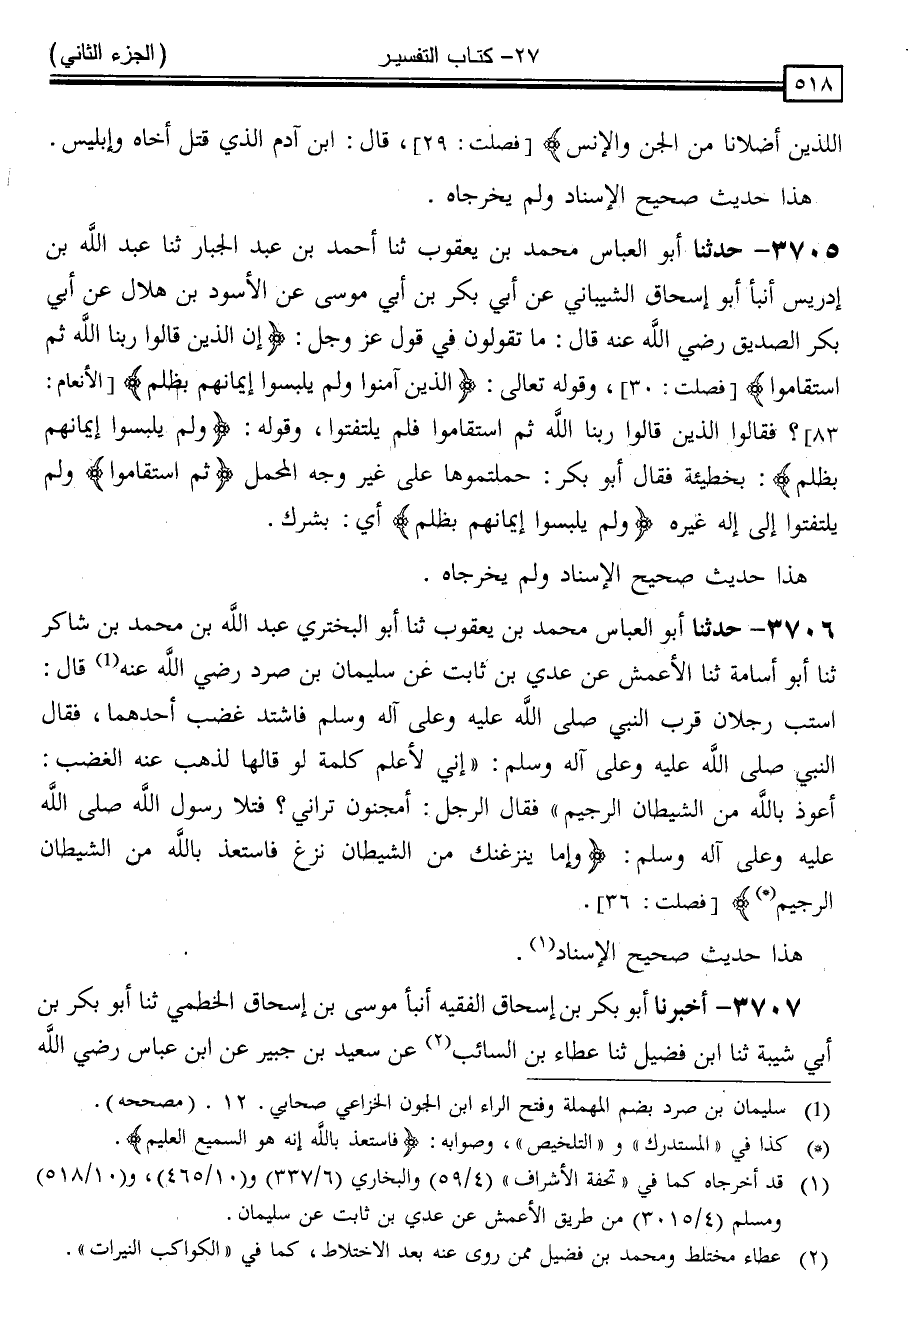 ٢٧- كتاب التفسير (الجزء الثاني)
٥١٨
اللذين أضلانا من الجن والإنس﴾ [فصلت: ٢٩]، قال: ابن آدم الذي قتل أخاه وإبليس.
هذا حديث صحيح الإسناد ولم يخرجاه.
٣٧٠٥- حدثنا أبو العباس محمد بن يعقوب ثنا أحمد بن عبد الجبار ثنا عبد الله بن
إدريس أنبأ أبو إسحاق الشيباني عن أبي بكر بن أبي موسى عن الأسود بن هلال عن أبي
بكر الصديق رضي الله عنه قال: ما تقولون في قول عز وجل: ﴿إن الذين قالوا ربنا الله ثم
استقاموا﴾ [فصلت: ٣٠]، وقوله تعالى: ﴿الذين آمنوا ولم يلبسوا إيمانهم بظلم﴾ [الأنعام:
٨٣]؟ فقالوا الذين قالوا ربنا الله ثم استقاموا فلم يلتفتوا، وقوله: ﴿ولم يلبسوا إيمانهم
بظلم﴾: بخطيئة فقال أبو بكر: حملتموها على غير وجه المحمل ﴿ثم استقاموا﴾ ولم
يلتفتوا إلى إله غيره ﴿ولم يلبسوا إيمانهم بظلم﴾ أي: بشرك.
هذا حديث صحيح الإسناد ولم يخرجاه.
٣٧٠٦- حدثنا أبو العباس محمد بن يعقوب ثنا أبو البختري عبد الله بن محمد بن شاكر
ثنا أبو أسامة ثنا الأعمش عن عدي بن ثابت عن سليمان بن صرد رضي الله عنه(1) قال:
استب رجلان قرب النبي صلى الله عليه وعلى آله وسلم فاشتد غضب أحدهما، فقال
النبي صلى الله عليه وعلى آله وسلم: «إني لأعلم كلمة لو قالها لذهب عنه الغضب:
أعوذ بالله من الشيطان الرجيم» فقال الرجل: أمجنون تراني؟ فتلا رسول الله صلى الله
عليه وعلى آله وسلم: ﴿وإما ينزغنك من الشيطان نزغ فاستعذ بالله من الشيطان
الرجيم(*)﴾ [فصلت: ٣٦].
هذا حديث صحيح الإسناد(١).
٣٧٠٧- أخبرنا أبو بكر بن إسحاق الفقيه أنبأ موسى بن إسحاق الخطمي ثنا أبو بكر بن
أبي شيبة ثنا ابن فضيل ثنا عطاء بن السائب(٢) عن سعيد بن جبير عن ابن عباس رضي الله
(1) سليمان بن صرد بضم المهملة وفتح الراء ابن الجون الخزاعي صحابي. ١٢. (مصححه).
(*) كذا في «المستدرك» و «التلخيص»، وصوابه: ﴿فاستعذ بالله إنه هو السميع العليم﴾.
(١) قد أخرجاه كما في «تحفة الأشراف» (٥٩/٤) والبخاري (٣٣٧/٦) و(٤٦٥/١٠)، و(٥١٨/١٠)
ومسلم (٣٠١٥/٤) من طريق الأعمش عن عدي بن ثابت عن سليمان.
(٢) عطاء مختلط ومحمد بن فضيل ممن روى عنه بعد الاختلاط، كما في «الكواكب النيرات».